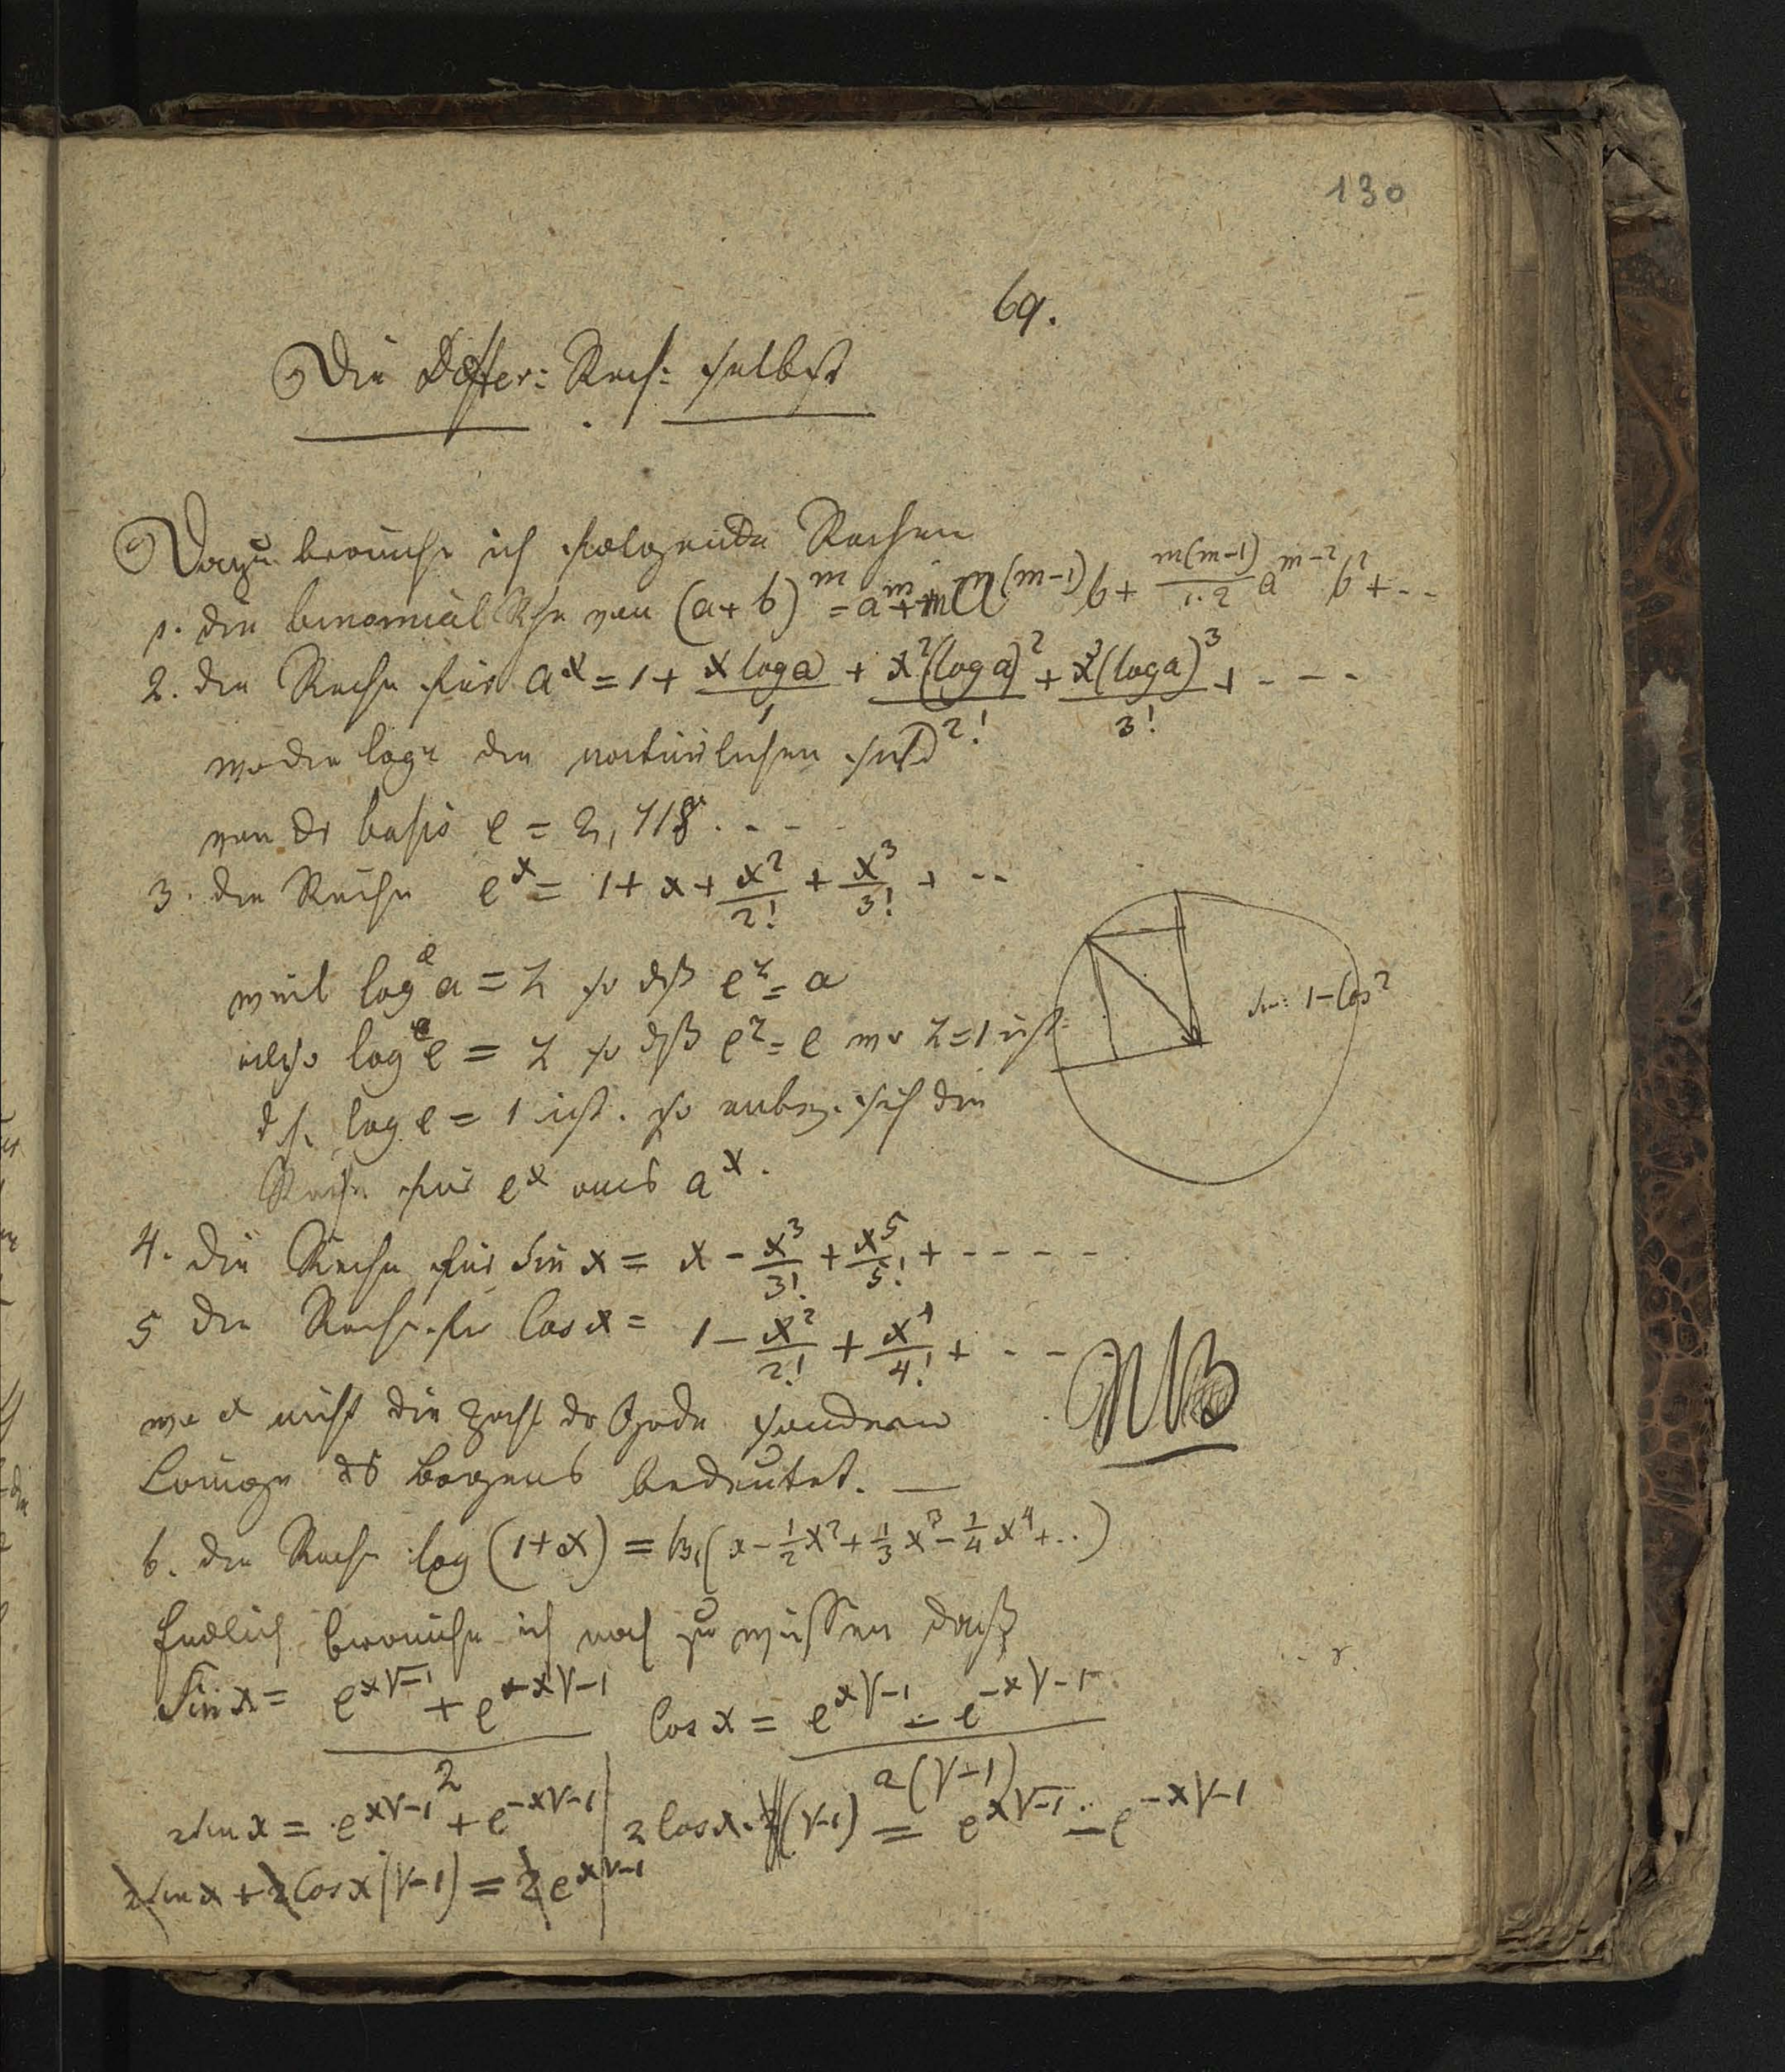 130
69.
Die Differ: Rech: selbst
Dazu brauche ich folgende Reihen
1. die binomial Rhe von (a+b)^m = a^m + m a^(m-1) b + m(m-1)/1.2 a^m-2 b^2 + ..
2. die Reihe für a^x = 1 + x log a/1 + x^2(log a)^2/2! + x^3(log a)^3/3! + - - -
wo die log die natürlichen sind
von dr basis e = 2,718. - -
3. die Reihe e^x = 1 + x + x^2/2! + x^3/3! + --
weil log^e a = z so dß e^z = a
also log^e e = z so dß e^z = e wo z=1 ist
1-Cos^2
d.h. log e = 1 ist. so sich die
Reihe für e^x aus a^x.
4. die Reihe für Sin x = x - x^3/3! + x^5/5! + - - - -
5 die Reihe für Cos x = 1 - x^2/2! + x^4/4! + - - -
NB
wo x nicht die Zahl dr Grade sondern
Laenge ds Bogens bedeutet. —
6. die Reihe log (1+x) = (x - 1/2 x^2 + 1/3 x^3 - 1/4 x^4 + ..)
Endlich brauche ich noch zu wissen daß
Sin x = e^x√-1 + e^-x√-1 / 2 Cos x = e^x√-1 - e^-x√-1 / 2(√-1)
2 sin x = e^x√-1 + e^-x√-1 | 2 Cos x . (√-1) = e^x√-1 - e^-x√-1
2 sin x + 2 Cos x (√-1) = 2 e^x√-1